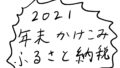 2021
年末かけこみ
ふるさと納税